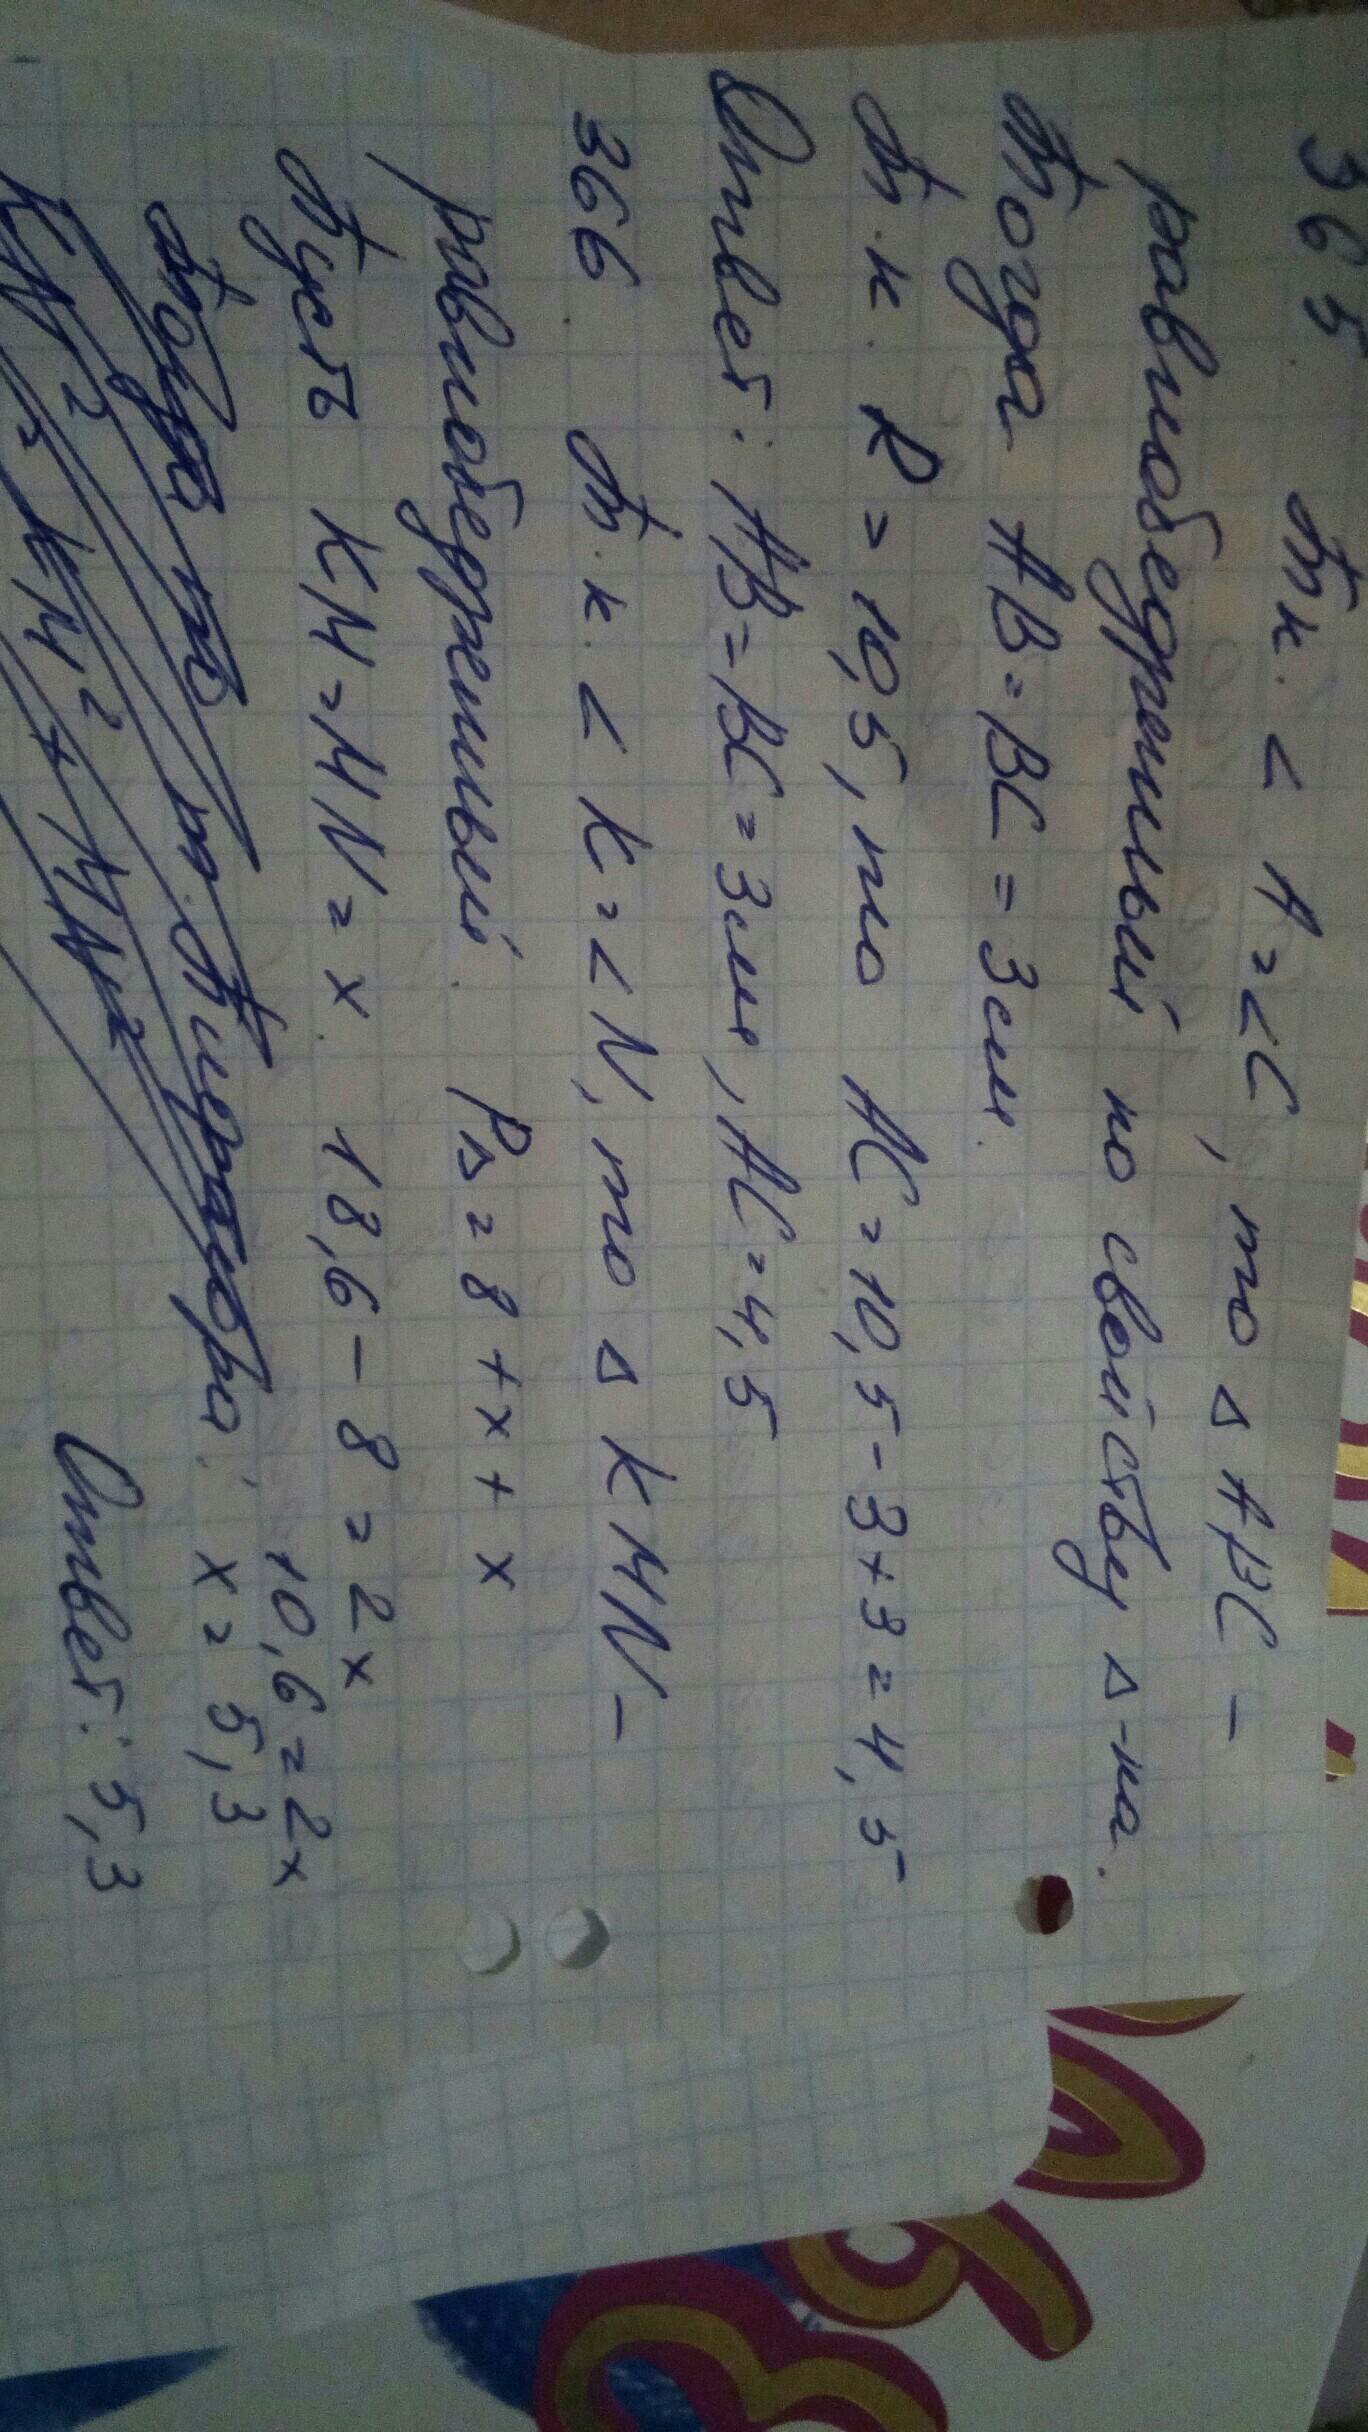 365. Т.к. < A = < C, то △ ABC –
равнобедренный по свойству △-ка.
Тогда AB = BC = 3см.
Т.к. P = 10,5, то AC = 10,5 - 3 + 3 = 4,5
Ответ: AB = BC = 3см, AC = 4,5
366. Т.к. < K = < N, то △ KMN –
равнобедренный. P△ = 8 + x + x
Пусть KM = MN = x. 18,6 - 8 = 2x
10,6 = 2x
по т. Пифагора: x = 5,3
KN² = KM² + MN²
Ответ: 5,3